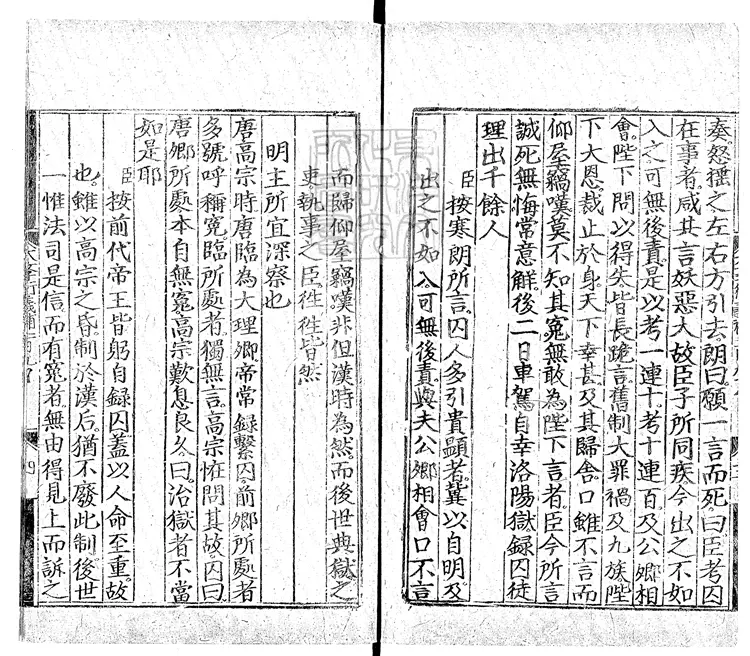 奏怒搖之左右方引去朗曰願一言而死曰臣考囚
在事者咸其言妖惡大故臣子所同疾今出之不如
入之可無後責是以考一連十考十連百及公卿相
會陛下問以得失皆長跪言舊制大罪禍及九族陛
下大恩裁止於身天下幸甚及其歸舍口雖不言而
仰屋竊嘆莫不知其冤無敢為陛下言者臣今所言
誠死無悔帝意解後二日車駕自幸洛陽獄錄囚徒
理出千餘人
臣按寒朗所言囚人多引貴顯者冀以自明及
出之不如入可無後責與夫公卿相會口不言
而歸仰屋竊嘆非但漢時為然而後世典獄之
吏執事之臣徃徃皆然
明主所宜深察也
唐高宗時唐臨為大理卿帝常錄繫囚前卿所處者
多號呼稱冤臨所處者獨無言高宗怪問其故囚曰
唐卿所處本自無冤高宗歎息良久曰治獄者不當
如是耶
臣按前代帝王皆躬自錄囚蓋以人命至重故
也雖以高宗之昏制於漢后猶不廢此制後世
一惟法司是信而有冤者無由得見上而訴之